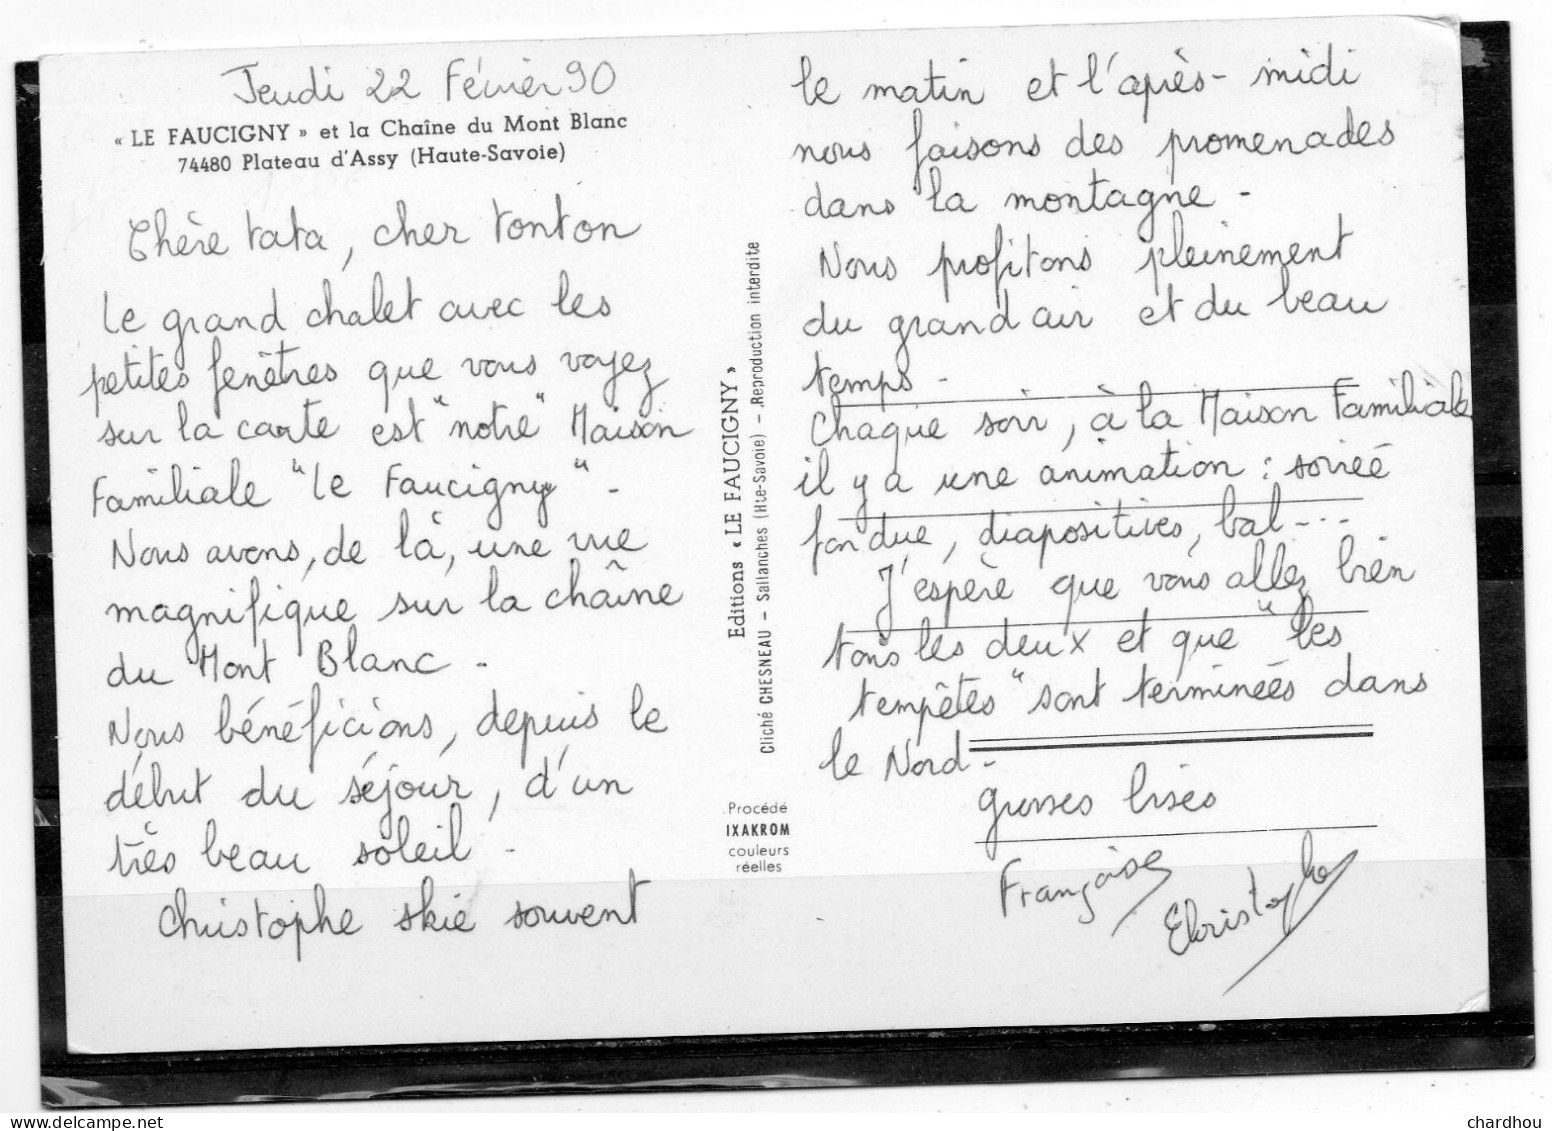 Jeudi 22 Février 90
« LE FAUCIGNY » et la Chaîne du Mont Blanc
74480 Plateau d'Assy (Haute-Savoie)
Chère tata, cher tonton
Le grand chalet avec les
petites fenêtres que vous voyez
sur la carte est "notre" Maison
Familiale "Le Faucigny" -
Nous avons, de là, une vue
magnifique sur la chaîne
du Mont Blanc -
Nous bénéficions, depuis le
début du séjour, d'un
très beau soleil -
Christophe skie souvent
Editions « LE FAUCIGNY »
Cliché CHESNEAU - Sallanches (Hte-Savoie) - Reproduction interdite
Procédé
IXAKROM
couleurs
réelles
le matin et l'après-midi
nous faisons des promenades
dans la montagne -
Nous profitons pleinement
du grand air et du beau
temps -
Chaque soir, à la Maison Familiale
il y a une animation : soireé
fondue, diapositives, bal---
J'espère que vous allez bien
tous les deux et que "les
tempêtes" sont terminées dans
le Nord -
grosses bises
Françoise
Christophe
chardhou